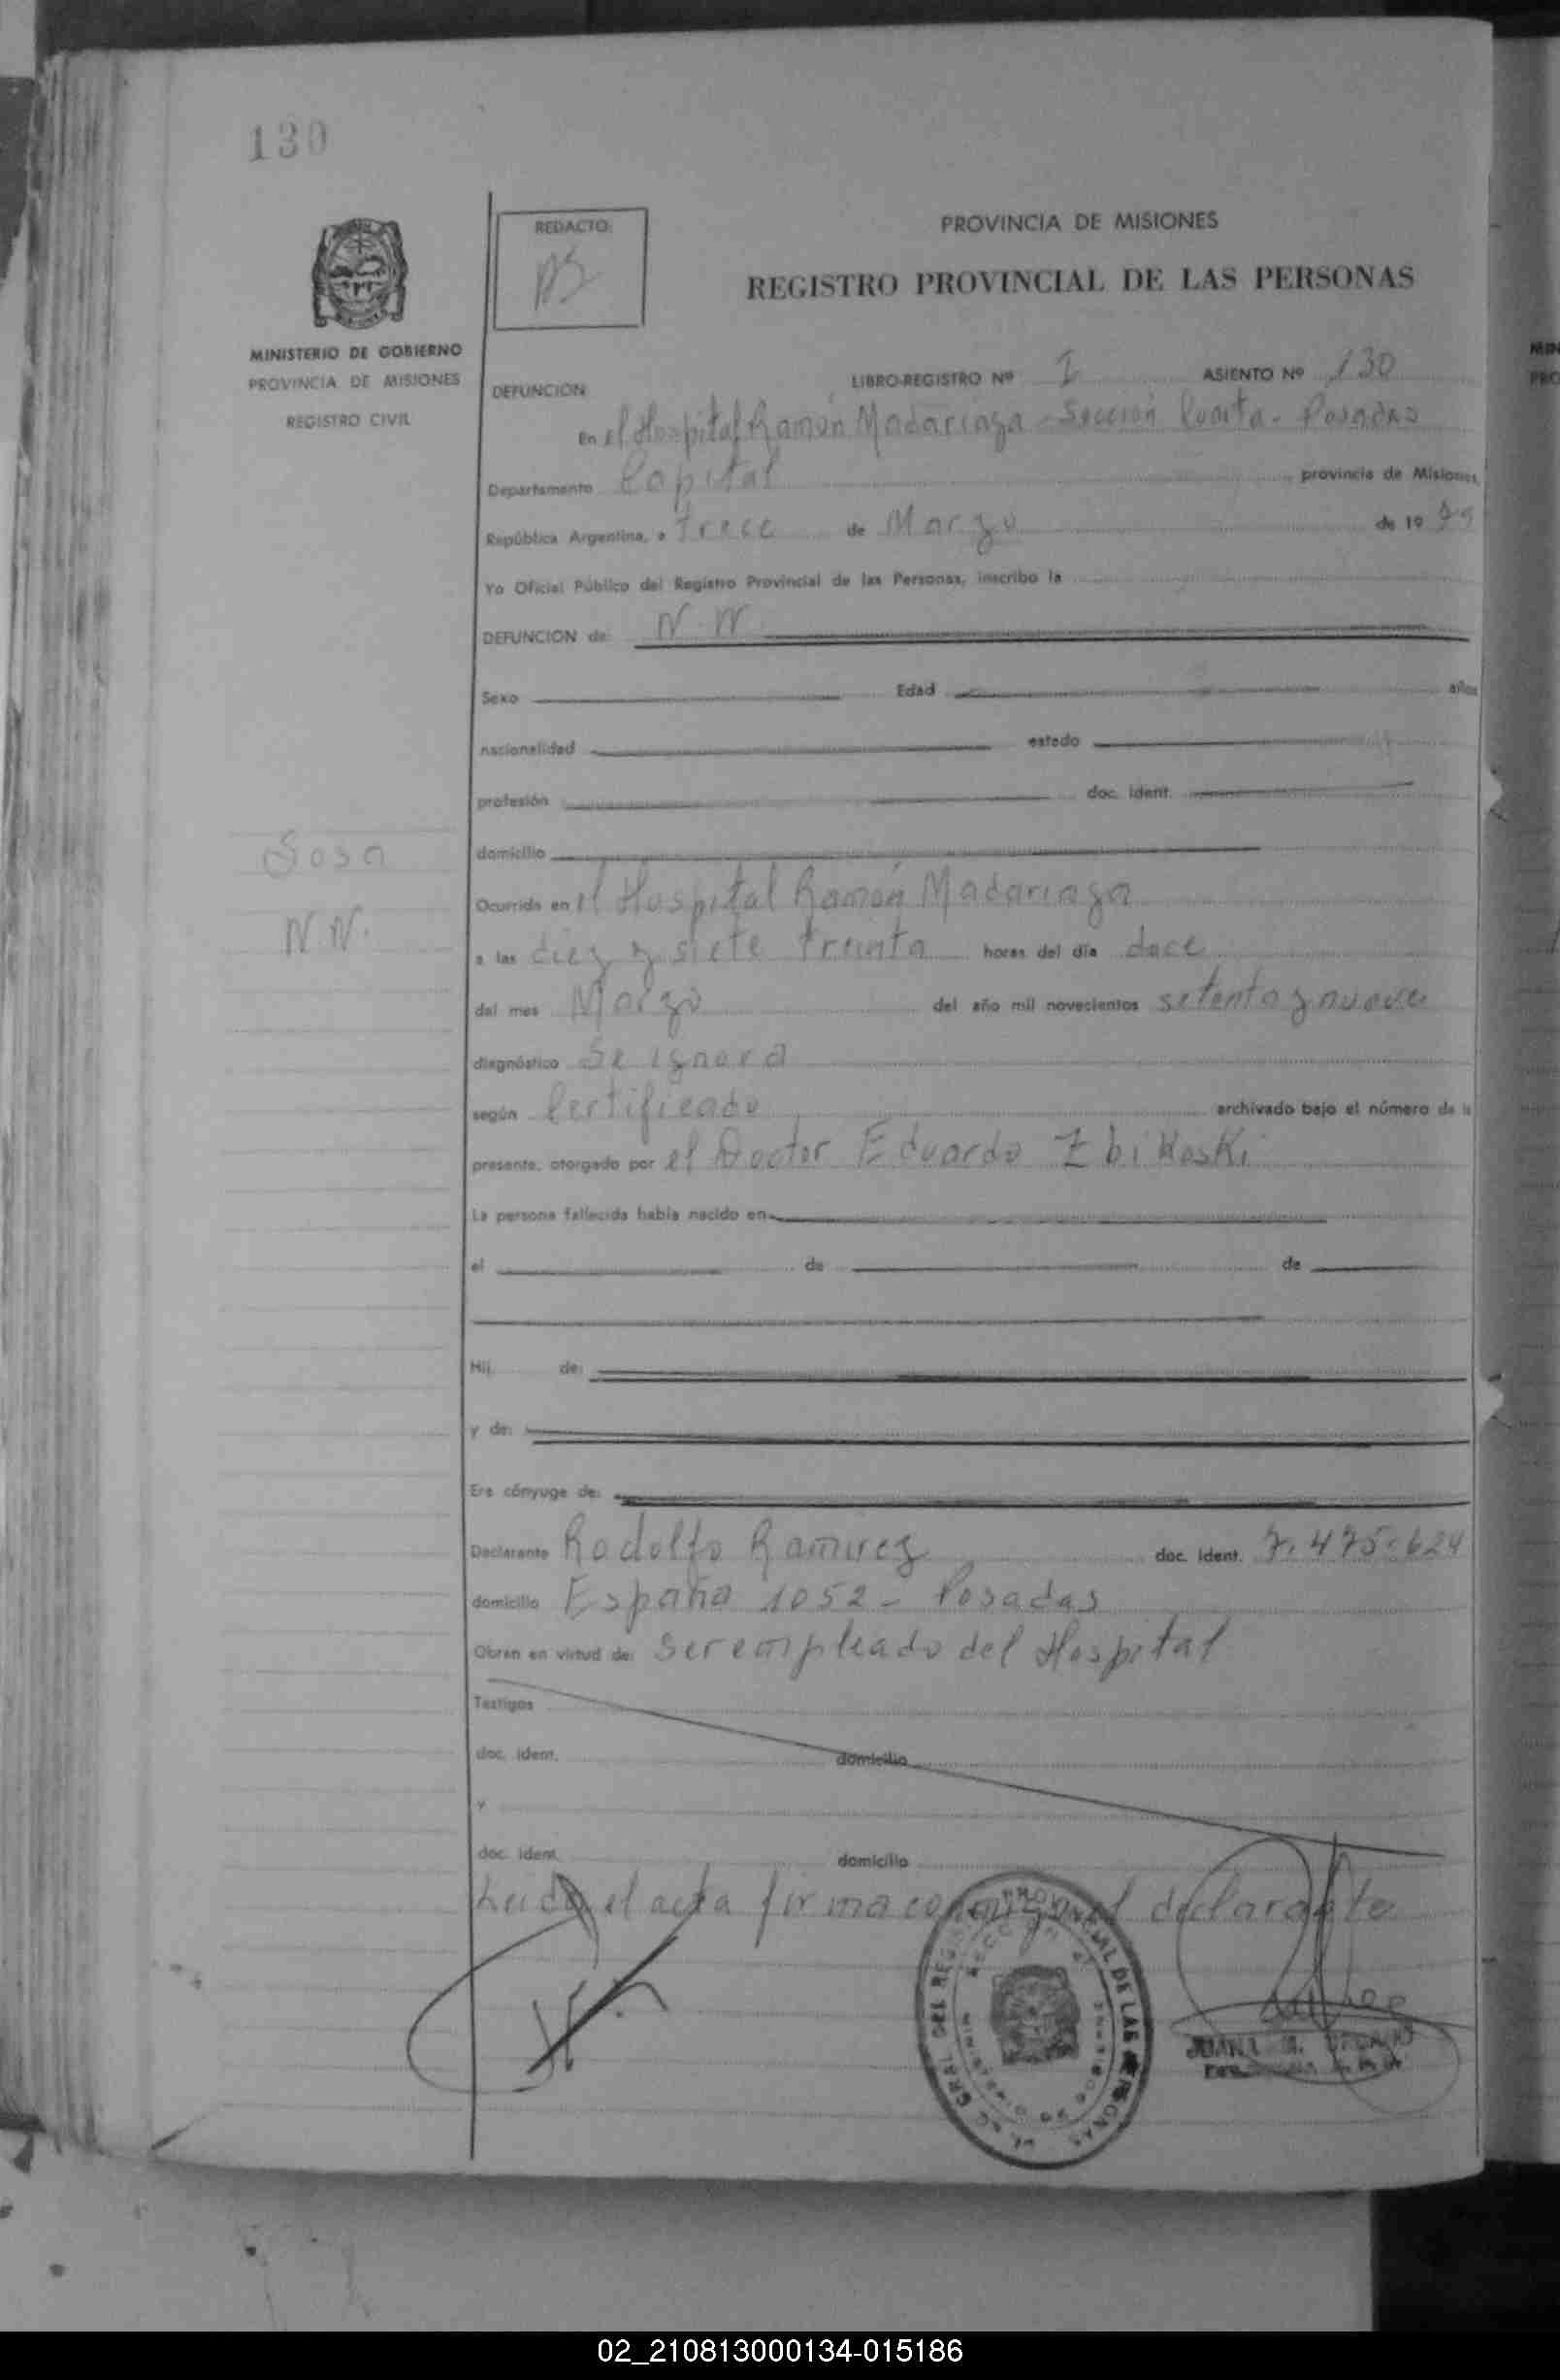 130
REDACTO:
PROVINCIA DE MISIONES
REGISTRO PROVINCIAL DE LAS PERSONAS
MINISTERIO DE GOBIERNO
PROVINCIA DE MISIONES
REGISTRO CIVIL
DEFUNCION LIBRO-REGISTRO Nº I ASIENTO Nº 130
En el Hospital Ramón Madariaga - Sección Cuarta - Posadas
Departamento Capital provincia de Misiones,
República Argentina, a trece de Marzo de 19 79
Yo Oficial Público del Registro Provincial de las Personas, inscribo la
DEFUNCION de: N. N.
Sexo Edad años
nacionalidad estado
profesión doc. ident.
domicilio
Sosa
N.N.
Ocurrida en el Hospital Ramón Madariaga
a las diez y siete treinta horas del día doce
del mes Marzo del año mil novecientos setenta y nueve
diagnóstico Se ignora
según Certificado archivado bajo el número de la
presente, otorgado por el Doctor Eduardo Zbikoski
La persona fallecida había nacido en
el de de
Hij de:
y de:
Era cónyuge de:
Declarante Rodolfo Ramirez doc. ident. 7.475.624
domicilio España 1052 - Posadas
Obran en virtud de: ser empleado del Hospital
Testigos
doc. ident. domicilio
y
doc. ident. domicilio
Leida el acta firma conmigo el declarante
PROVINCIAL DE LAS PERSONAS
GRAL DEL
JUANA
02_210813000134-015186